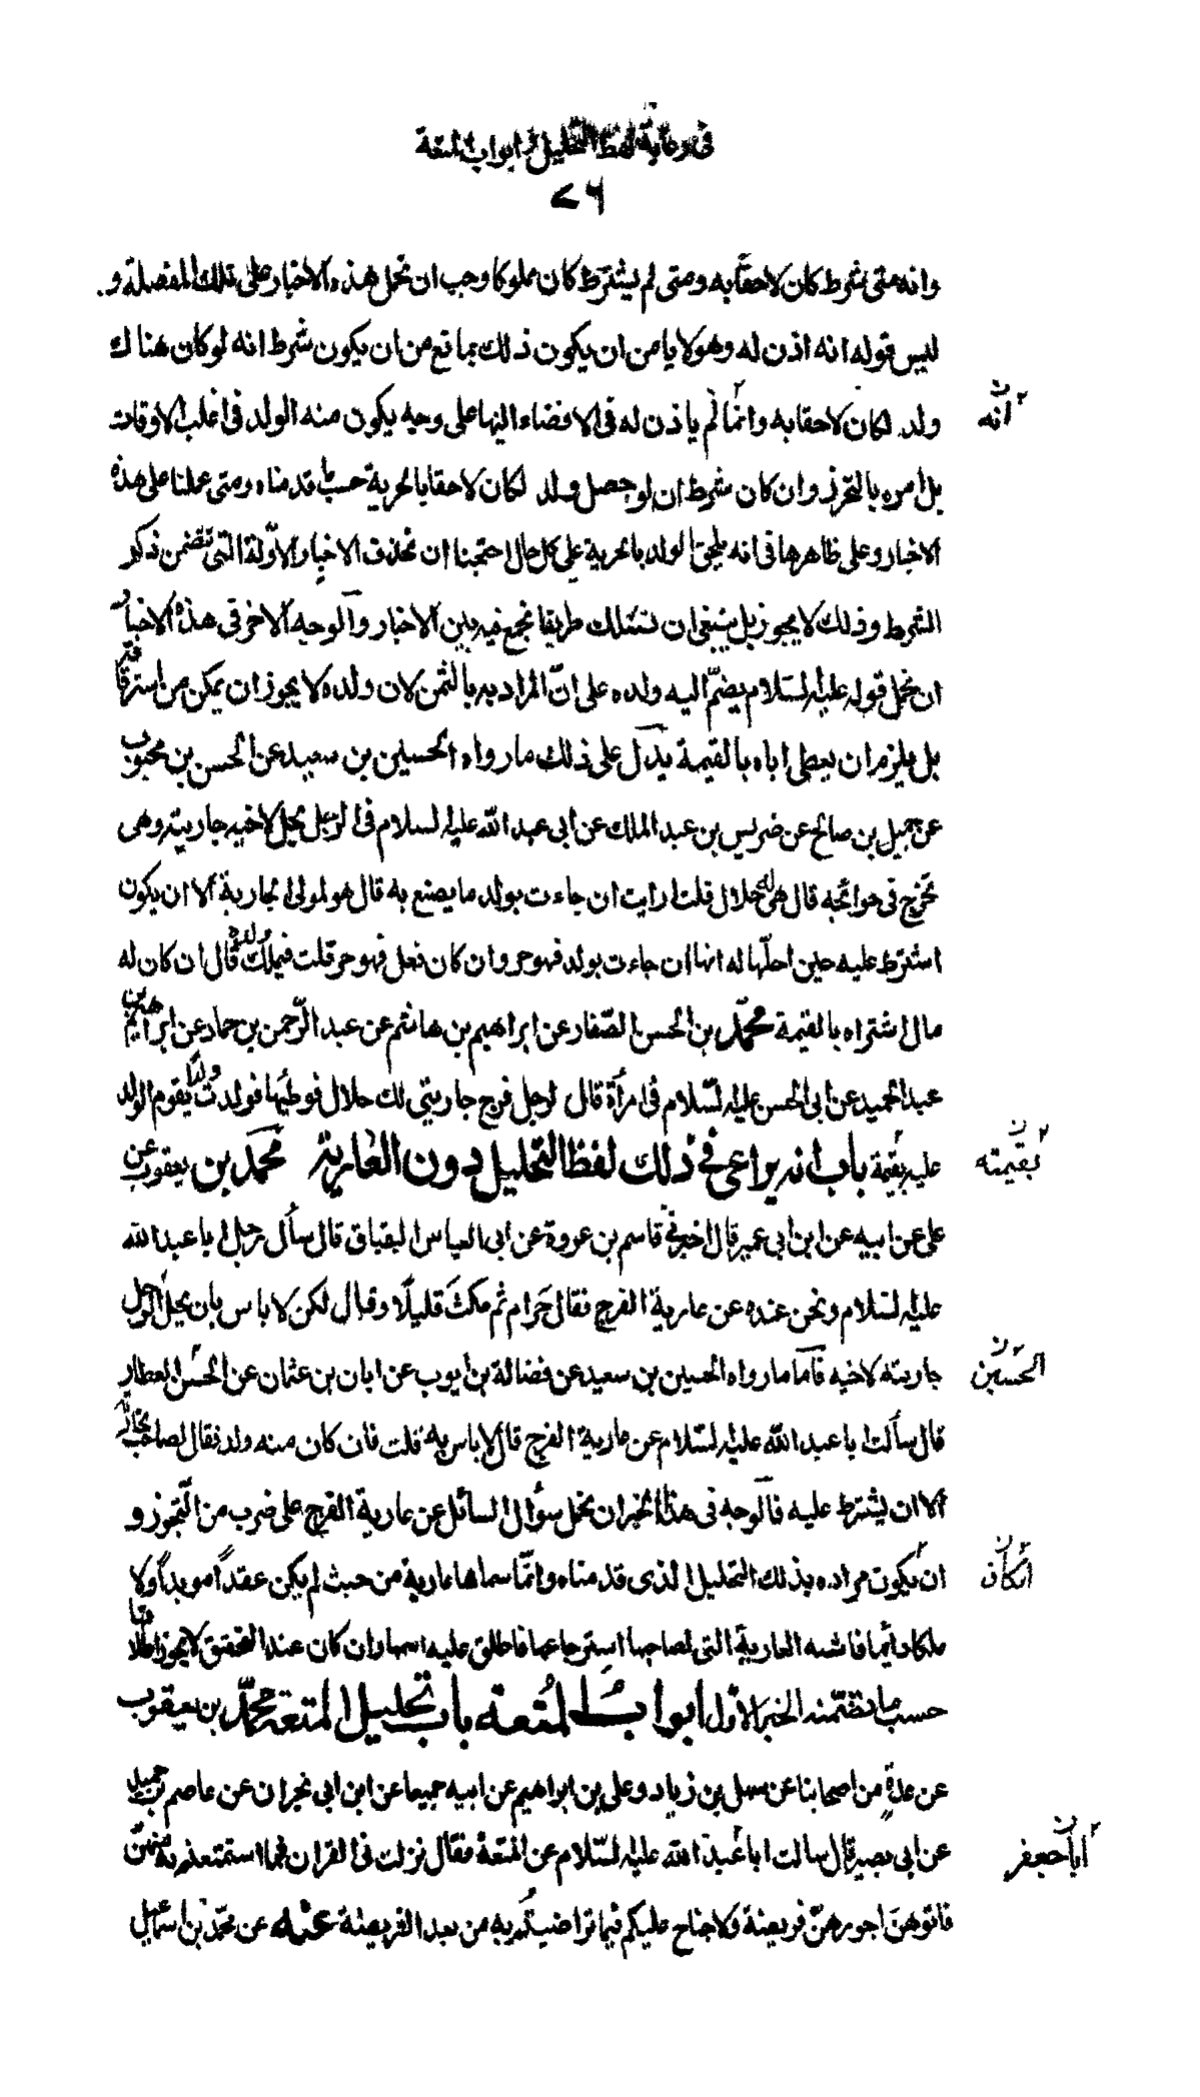 في رعاية لفظ التحليل و ابواب المتعة
٧٦
وانه متى شرط كان لاحقا به ومتى لم يشترط كان مملوكا وجب ان نحمل هذه الاخبار على تلك المفصلة و
ليس قوله انه اذن له وهو لا يامن ان يكون ذلك بمانع من ان يكون شرط انه لو كان هناك
ولد لكان لاحقا به وانما لم ياذن له في الافضاء اليها على وجه يكون منه الولد في اغلب الاوقات
انه
بل امره بالتحرز وان كان شرط ان لو حصل ولد لكان لاحقا بالحرية حسب ما قدمناه ومتى عملنا على هذه
الاخبار وعلى ظاهرها في انه يلحق الولد بالحرية على كل حال احتجنا ان نحذف الاخبار الاولة التي تتضمن ذكر
الشرط وذلك لا يجوز بل ينبغي ان نسلك طريقا نجمع فيه بين الاخبار والوجه الاخر في هذه الاخبار
ان نحمل قوله عليه السلام يضمّ اليه ولده على انّ المراد به بالثمن لان ولده لا يجوز ان يمكن من استرقاقه
بل يلزم ان يعطى اباه بالقيمة يدل على ذلك ما رواه الحسين بن سعيد عن الحسن بن محبوب
عن جميل بن صالح عن ضريس بن عبد الملك عن ابي عبد الله عليه السلام في الرجل يحل لاخيه جاريته وهى
تخرج في حوائجه قال هي له حلال قلت ارايت ان جاءت بولد ما يصنع به قال هو لمولى الجارية الا ان يكون
اشترط عليه حين احلّها له انها ان جاءت بولد فهو حر وان كان فعل فهو حر قلت فيملك ولده قال ان كان له
مال اشتراه بالقيمة محمّد بن الحسن الصّفار عن ابراهيم بن هاشم عن عبد الرّحمن بن حماد عن ابراهيم بن
عبد الحميد عن ابي الحسن عليه السّلام في امرأة قال لرجل فرج جاريتي لك حلال فوطئها فولدت ولدا يقوم الولد
عليه بقيمة باب انه يراعى في ذلك لفظ التحليل دون العارية محمد بن يعقوب عن
بقيمته
على عن ابيه عن ابن ابي عمير قال اخبرني قاسم بن عروة عن ابي العباس البقباق قال سأل رجل ابا عبد الله
عليه السّلام ونحن عنده عن عارية الفرج فقال حرام ثم مكث قليلًا وقال لكن لا باس بان يحل الرجل
جاريته لاخيه فاما ما رواه الحسين بن سعيد عن فضالة بن ايوب عن ابان بن عثمان عن الحسن العطار
الحسين
قال سألت ابا عبد الله عليه السّلام عن عارية الفرج قال لا باس به قلت فان كان منه ولد فقال لصاحب الجارية
الا ان يشترط عليه فالوجه في هذا الخبر ان نحمل سؤال السائل عن عارية الفرج على ضرب من التجوز و
ان يكون مراده بذلك التحليل الذى قدمناه وانّما سماها عارية من حيث لم يكن عقداً مويداً ولا
ان كان
ملكا دائما فاشبه العارية التى لصاحبها استرجاعها فاطلق عليه اسمها وان كان عند التحقيق لا يجوز اطلاقها
حسب ما تضمّنه الخبر الاوّل ابواب المتعة باب تحليل المتعة محمّد بن يعقوب
عن عدة من اصحابنا عن سهل بن زياد وعلى بن ابراهيم عن ابيه جميعا عن ابن ابي نجران عن عاصم بن حميد
عن ابي بصير قال سالت ابا عبد الله عليه السّلام عن المتعة فقال نزلت في القران فما استمتعتم به منهن
ابا جعفر
فاتوهن اجورهنّ فريضة ولا جناح عليكم فيما تراضيتم به من بعد الفريضة عنه عن محمّد بن اسمعيل